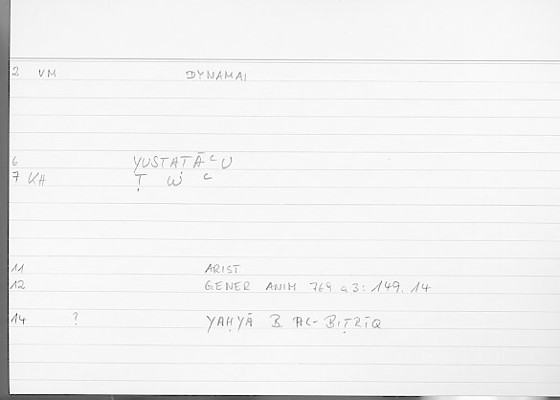 2 VM DYNAMAI
6 YUSTAṬĀʿU
7 KH Ṭ W ʿ
11 ARIST
12 GENER ANIM 769 a3: 149.14
14 ? YAḤYĀ B AL-BIṬRĪQ